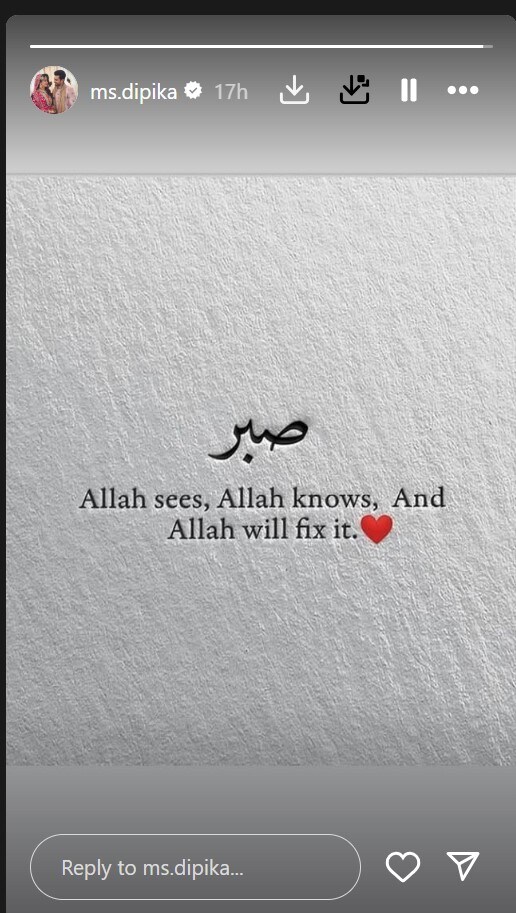 ms.dipika 17h
صبر
Allah sees, Allah knows, And
Allah will fix it.❤️
Reply to ms.dipika...